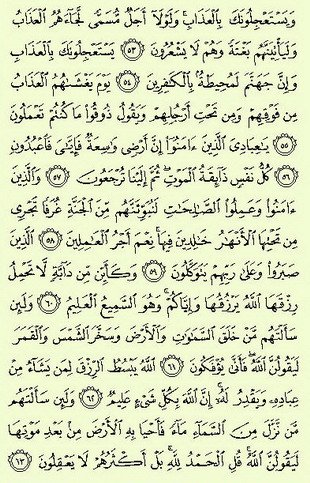 وَيَسْتَعْجِلُونَكَ بِٱلْعَذَابِ وَلَوْلَآ أَجَلٌ مُّسَمًّى لَّجَآءَهُمُ ٱلْعَذَابُ
وَلَيَأْتِيَنَّهُم بَغْتَةً وَهُمْ لَا يَشْعُرُونَ ٥٣ يَسْتَعْجِلُونَكَ بِٱلْعَذَابِ
وَإِنَّ جَهَنَّمَ لَمُحِيطَةٌۢ بِٱلْكَٰفِرِينَ ٥٤ يَوْمَ يَغْشَىٰهُمُ ٱلْعَذَابُ
مِن فَوْقِهِمْ وَمِن تَحْتِ أَرْجُلِهِمْ وَيَقُولُ ذُوقُوا۟ مَا كُنتُمْ تَعْمَلُونَ
٥٥ يَٰعِبَادِىَ ٱلَّذِينَ ءَامَنُوٓا۟ إِنَّ أَرْضِى وَٰسِعَةٌ فَإِيَّٰىَ فَٱعْبُدُونِ
٥٦ كُلُّ نَفْسٍ ذَآئِقَةُ ٱلْمَوْتِ ثُمَّ إِلَيْنَا تُرْجَعُونَ ٥٧ وَٱلَّذِينَ
ءَامَنُوا۟ وَعَمِلُوا۟ ٱلصَّٰلِحَٰتِ لَنُبَوِّئَنَّهُم مِّنَ ٱلْجَنَّةِ غُرَفًا تَجْرِى
مِن تَحْتِهَا ٱلْأَنْهَٰرُ خَٰلِدِينَ فِيهَا نِعْمَ أَجْرُ ٱلْعَٰمِلِينَ ٥٨ ٱلَّذِينَ
صَبَرُوا۟ وَعَلَىٰ رَبِّهِمْ يَتَوَكَّلُونَ ٥٩ وَكَأَيِّن مِّن دَآبَّةٍ لَّا تَحْمِلُ
رِزْقَهَا ٱللَّهُ يَرْزُقُهَا وَإِيَّاكُمْ وَهُوَ ٱلسَّمِيعُ ٱلْعَلِيمُ ٦٠ وَلَئِن
سَأَلْتَهُم مَّنْ خَلَقَ ٱلسَّمَٰوَٰتِ وَٱلْأَرْضَ وَسَخَّرَ ٱلشَّمْسَ وَٱلْقَمَرَ
لَيَقُولُنَّ ٱللَّهُ فَأَنَّىٰ يُؤْفَكُونَ ٦١ ٱللَّهُ يَبْسُطُ ٱلرِّزْقَ لِمَن يَشَآءُ مِنْ
عِبَادِهِۦ وَيَقْدِرُ لَهُۥٓ إِنَّ ٱللَّهَ بِكُلِّ شَىْءٍ عَلِيمٌ ٦٢ وَلَئِن سَأَلْتَهُم
مَّن نَّزَّلَ مِنَ ٱلسَّمَآءِ مَآءً فَأَحْيَا بِهِ ٱلْأَرْضَ مِنۢ بَعْدِ مَوْتِهَا
لَيَقُولُنَّ ٱللَّهُ قُلِ ٱلْحَمْدُ لِلَّهِ بَلْ أَكْثَرُهُمْ لَا يَعْقِلُونَ ٦٣